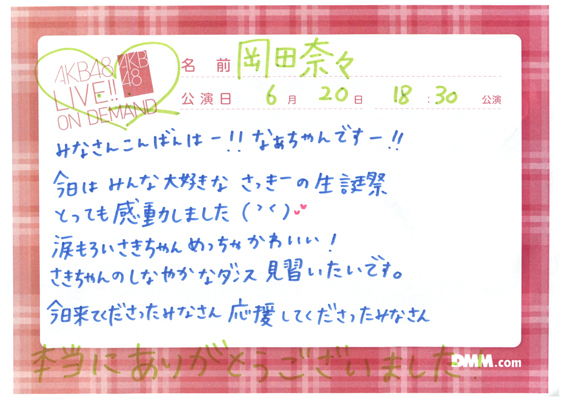 AKB48
LIVE!!
ON DEMAND
AKB
48
名前 岡田奈々
公演日 6月 20日 18:30 公演
みなさんこんばんはー!! なぁちゃんですー!!
今日は みんな大好きな さっきーの生誕祭
とっても感動しました
涙もろいさきちゃん めっちゃかわいい!
さきちゃんのしなやかなダンス 見習いたいです。
今日来てくださったみなさん 応援してくださったみなさん
本当にありがとうございました!
DMM.com